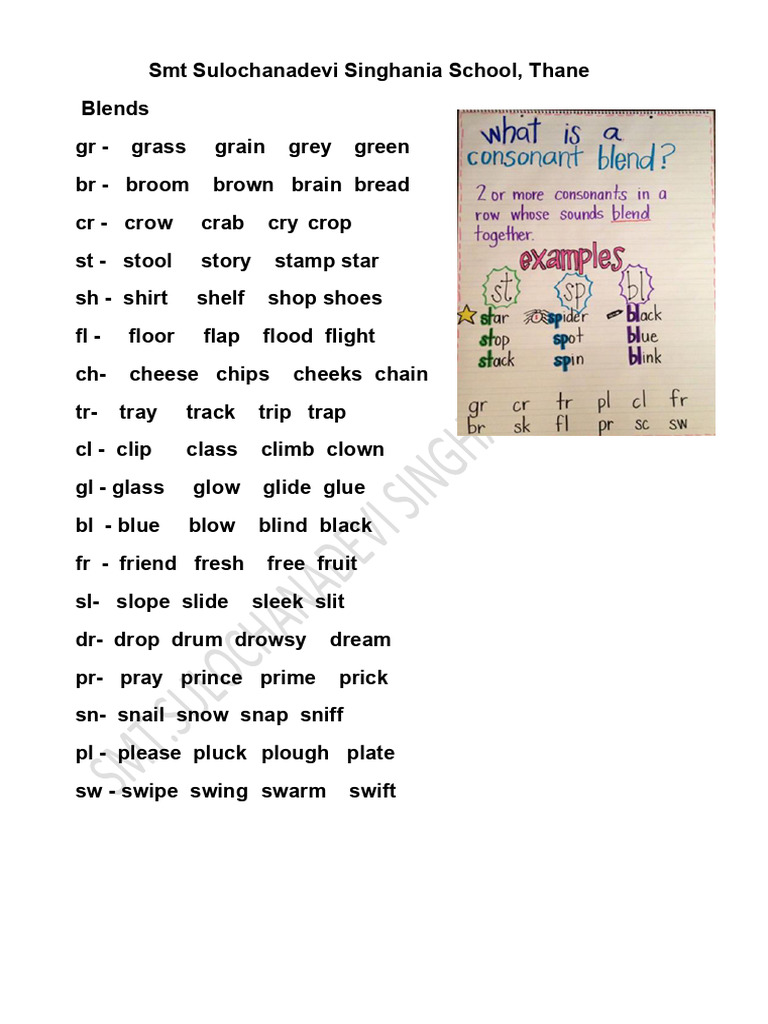 Smt Sulochanadevi Singhania School, Thane
Blends
gr - grass grain grey green
br - broom brown brain bread
cr - crow crab cry crop
st - stool story stamp star
sh - shirt shelf shop shoes
fl - floor flap flood flight
ch- cheese chips cheeks chain
tr- tray track trip trap
cl - clip class climb clown
gl - glass glow glide glue
bl - blue blow blind black
fr - friend fresh free fruit
sl- slope slide sleek slit
dr- drop drum drowsy dream
pr- pray prince prime prick
sn- snail snow snap sniff
pl - please pluck plough plate
sw - swipe swing swarm swift
what is a
consonant blend?
2 or more consonants in a
row whose sounds blend
together.
examples
st sp bl
star spider black
stop spot blue
stack spin blink
gr cr tr pl cl fr
br sk fl pr sc sw
SMT.SULOCHANADEVI SINGH